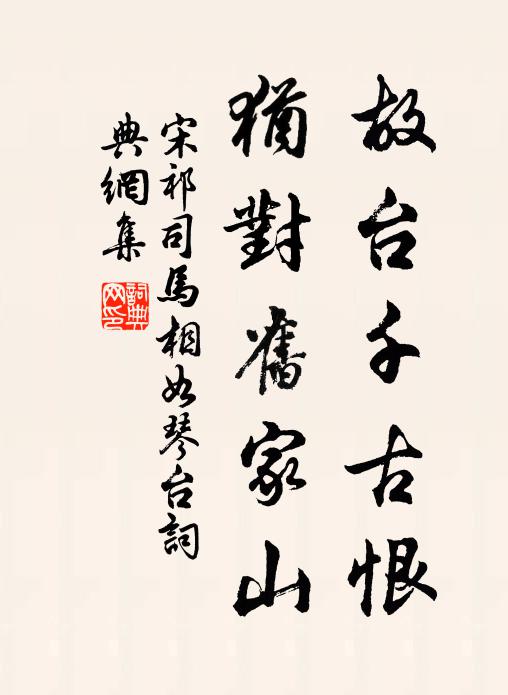 故台千古恨
猶對舊家山
宋祁司馬相如琴台詞
典網集
詞典網印